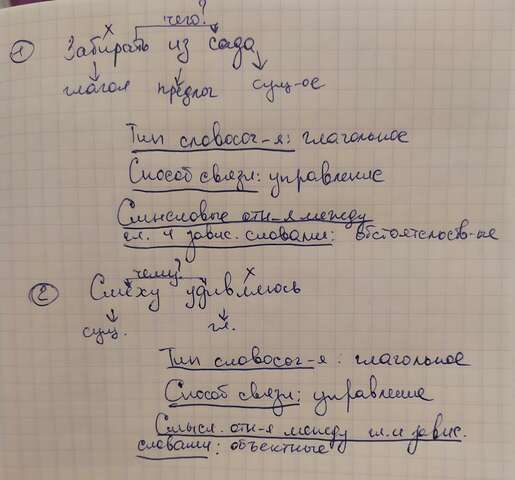 чего?
х
1 Забирать из сада
глагол предлог сущ-ое
Тип словосоч-я: глагольное
Способ связи: управление
Смысловые отн-я между
гл. и завис. словами: обстоятельств-ые
чему? х
2 Смеху удивляюсь
сущ. гл.
Тип словосоч-я: глагольное
Способ связи: управление
Смысл. отн-я между гл. и завис.
словами: объектные